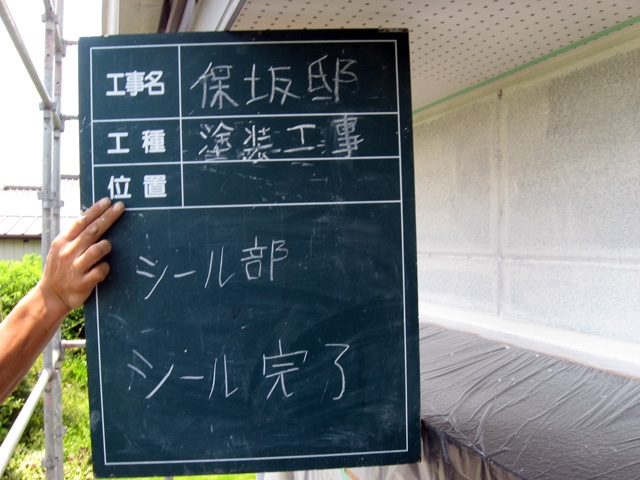 工事名 保坂邸
工種 塗装工事
位置
シール部
シール完了